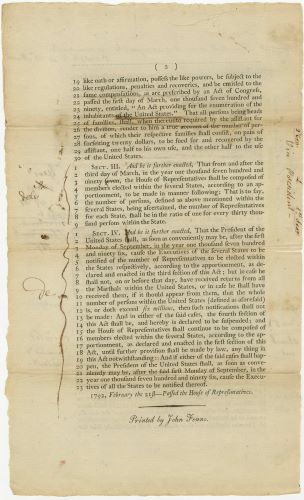 ( 2 )
19 like oath or affirmation, possess the like powers, be subject to the
20 like regulations, penalties and recoveries, and be entitled to the
21 same compensations, as are prescribed by an Act of Congress,
22 passed the first day of March, one thousand seven hundred and
23 ninety, entitled, "An Act providing for the enumeration of the
24 inhabitants of the United States." That all persons being heads
25 of families, shall, when thereunto required by the assistant for
26 the division, render to him a true account of the number of per-
27 sons, of which their respective families shall consist, on pain of
28 forfeiting twenty dollars, to be sued for and recovered by the
29 assistant, one half to his own use, and the other half to the use
30 of the United States.
SECT. III. And be it further enacted, That from and after the
2 third day of March, in the year one thousand seven hundred and
3 ninety seven, the House of Representatives shall be composed of
4 members elected within the several States, according to an ap-
5 portionment, to be made in manner following: That is to say,
6 the number of persons, defined as above mentioned within the
7 several States, being ascertained, the number of Representatives
8 for each State, shall be in the ratio of one for every thirty thou-
9 sand persons within the State.
SECT. IV. And be it further enacted, That the President of the
2 United States shall, as soon as conveniently may be, after the first
3 Monday of September, in the year one thousand seven hundred
4 and ninety six, cause the Executives of the several States to be
5 notified of the number of Representatives to be elected within
6 the States respectively, according to the apportionment, as de-
7 clared and enacted in the third section of this Act; but in case he
8 shall not, on or before that day, have received returns from all
9 the Marshals within the United States, or in case he shall have
10 received them, if it should appear from them, that the whole
11 number of persons within the United States (defined as aforesaid)
12 is, or doth exceed six million, then such notifications shall not
13 be made: And in either of the said cases, the fourth section of
14 this Act shall be, and hereby is declared to be suspended; and
15 the House of Representatives shall continue to be composed of
16 members elected within the several States, according to the ap-
17 portionment, as declared and enacted in the first section of this
18 Act, until further provision shall be made by law, any thing in
19 this Act notwithstanding: And if either of the said cases shall hap-
20 pen, the President of the United States shall, as soon as conve-
21 niently may be, after the said first Monday of September, in the
22 year one thousand seven hundred and ninety six, cause the Execu-
23 tives of all the States to be notified thereof.
1792, February the 21st—Passed the House of Representatives.
Printed by John Fenno.